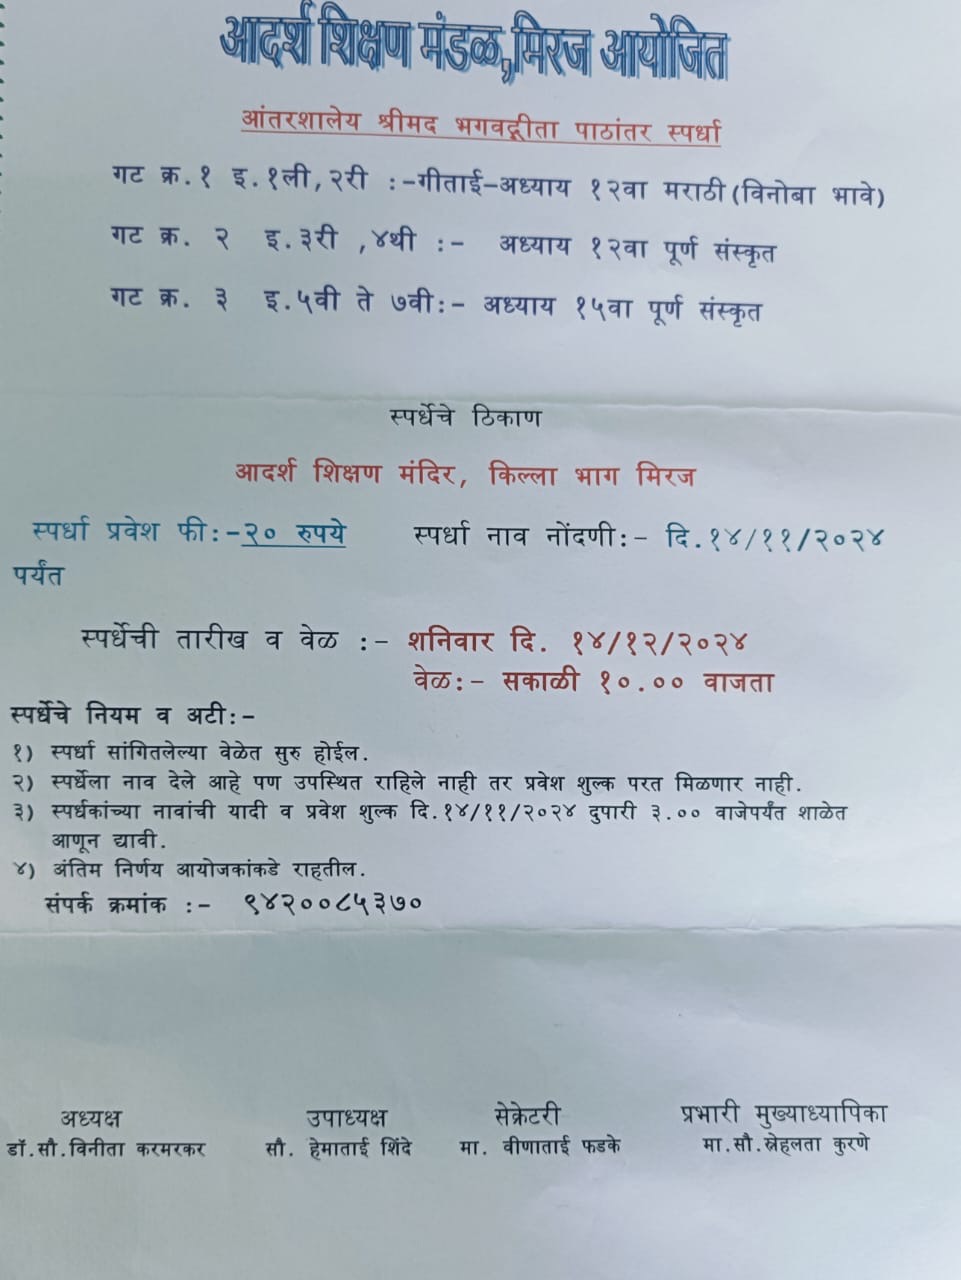 आदर्श शिक्षण मंडळ,मिरज आयोजित
आंतरशालेय श्रीमद भगवद्गीता पाठांतर स्पर्धा
गट क्र.१ इ.१ली,२री :-गीताई-अध्याय १२वा मराठी(विनोबा भावे)
गट क्र. २ इ.३री ,४थी :- अध्याय १२वा पूर्ण संस्कृत
गट क्र. ३ इ.५वी ते ७वी:- अध्याय १५वा पूर्ण संस्कृत
स्पर्धेचे ठिकाण
आदर्श शिक्षण मंदिर, किल्ला भाग मिरज
स्पर्धा प्रवेश फी:-२० रुपये स्पर्धा नाव नोंदणी:- दि.१४/११/२०२४
पर्यंत
स्पर्धेची तारीख व वेळ :- शनिवार दि. १४/१२/२०२४
वेळ:- सकाळी १०.०० वाजता
स्पर्धेचे नियम व अटी:-
१) स्पर्धा सांगितलेल्या वेळेत सुरु होईल.
२) स्पर्धेला नाव देले आहे पण उपस्थित राहिले नाही तर प्रवेश शुल्क परत मिळणार नाही.
३) स्पर्धकांच्या नावांची यादी व प्रवेश शुल्क दि.१४/११/२०२४ दुपारी ३.०० वाजेपर्यंत शाळेत
आणून द्यावी.
४) अंतिम निर्णय आयोजकांकडे राहतील.
संपर्क क्रमांक :- ९४२००८५३७०
अध्यक्ष उपाध्यक्ष सेक्रेटरी प्रभारी मुख्याध्यापिका
डॉ.सौ.विनीता करमरकर सौ. हेमाताई शिंदे मा. वीणाताई फडके मा.सौ.स्नेहलता कुरणे